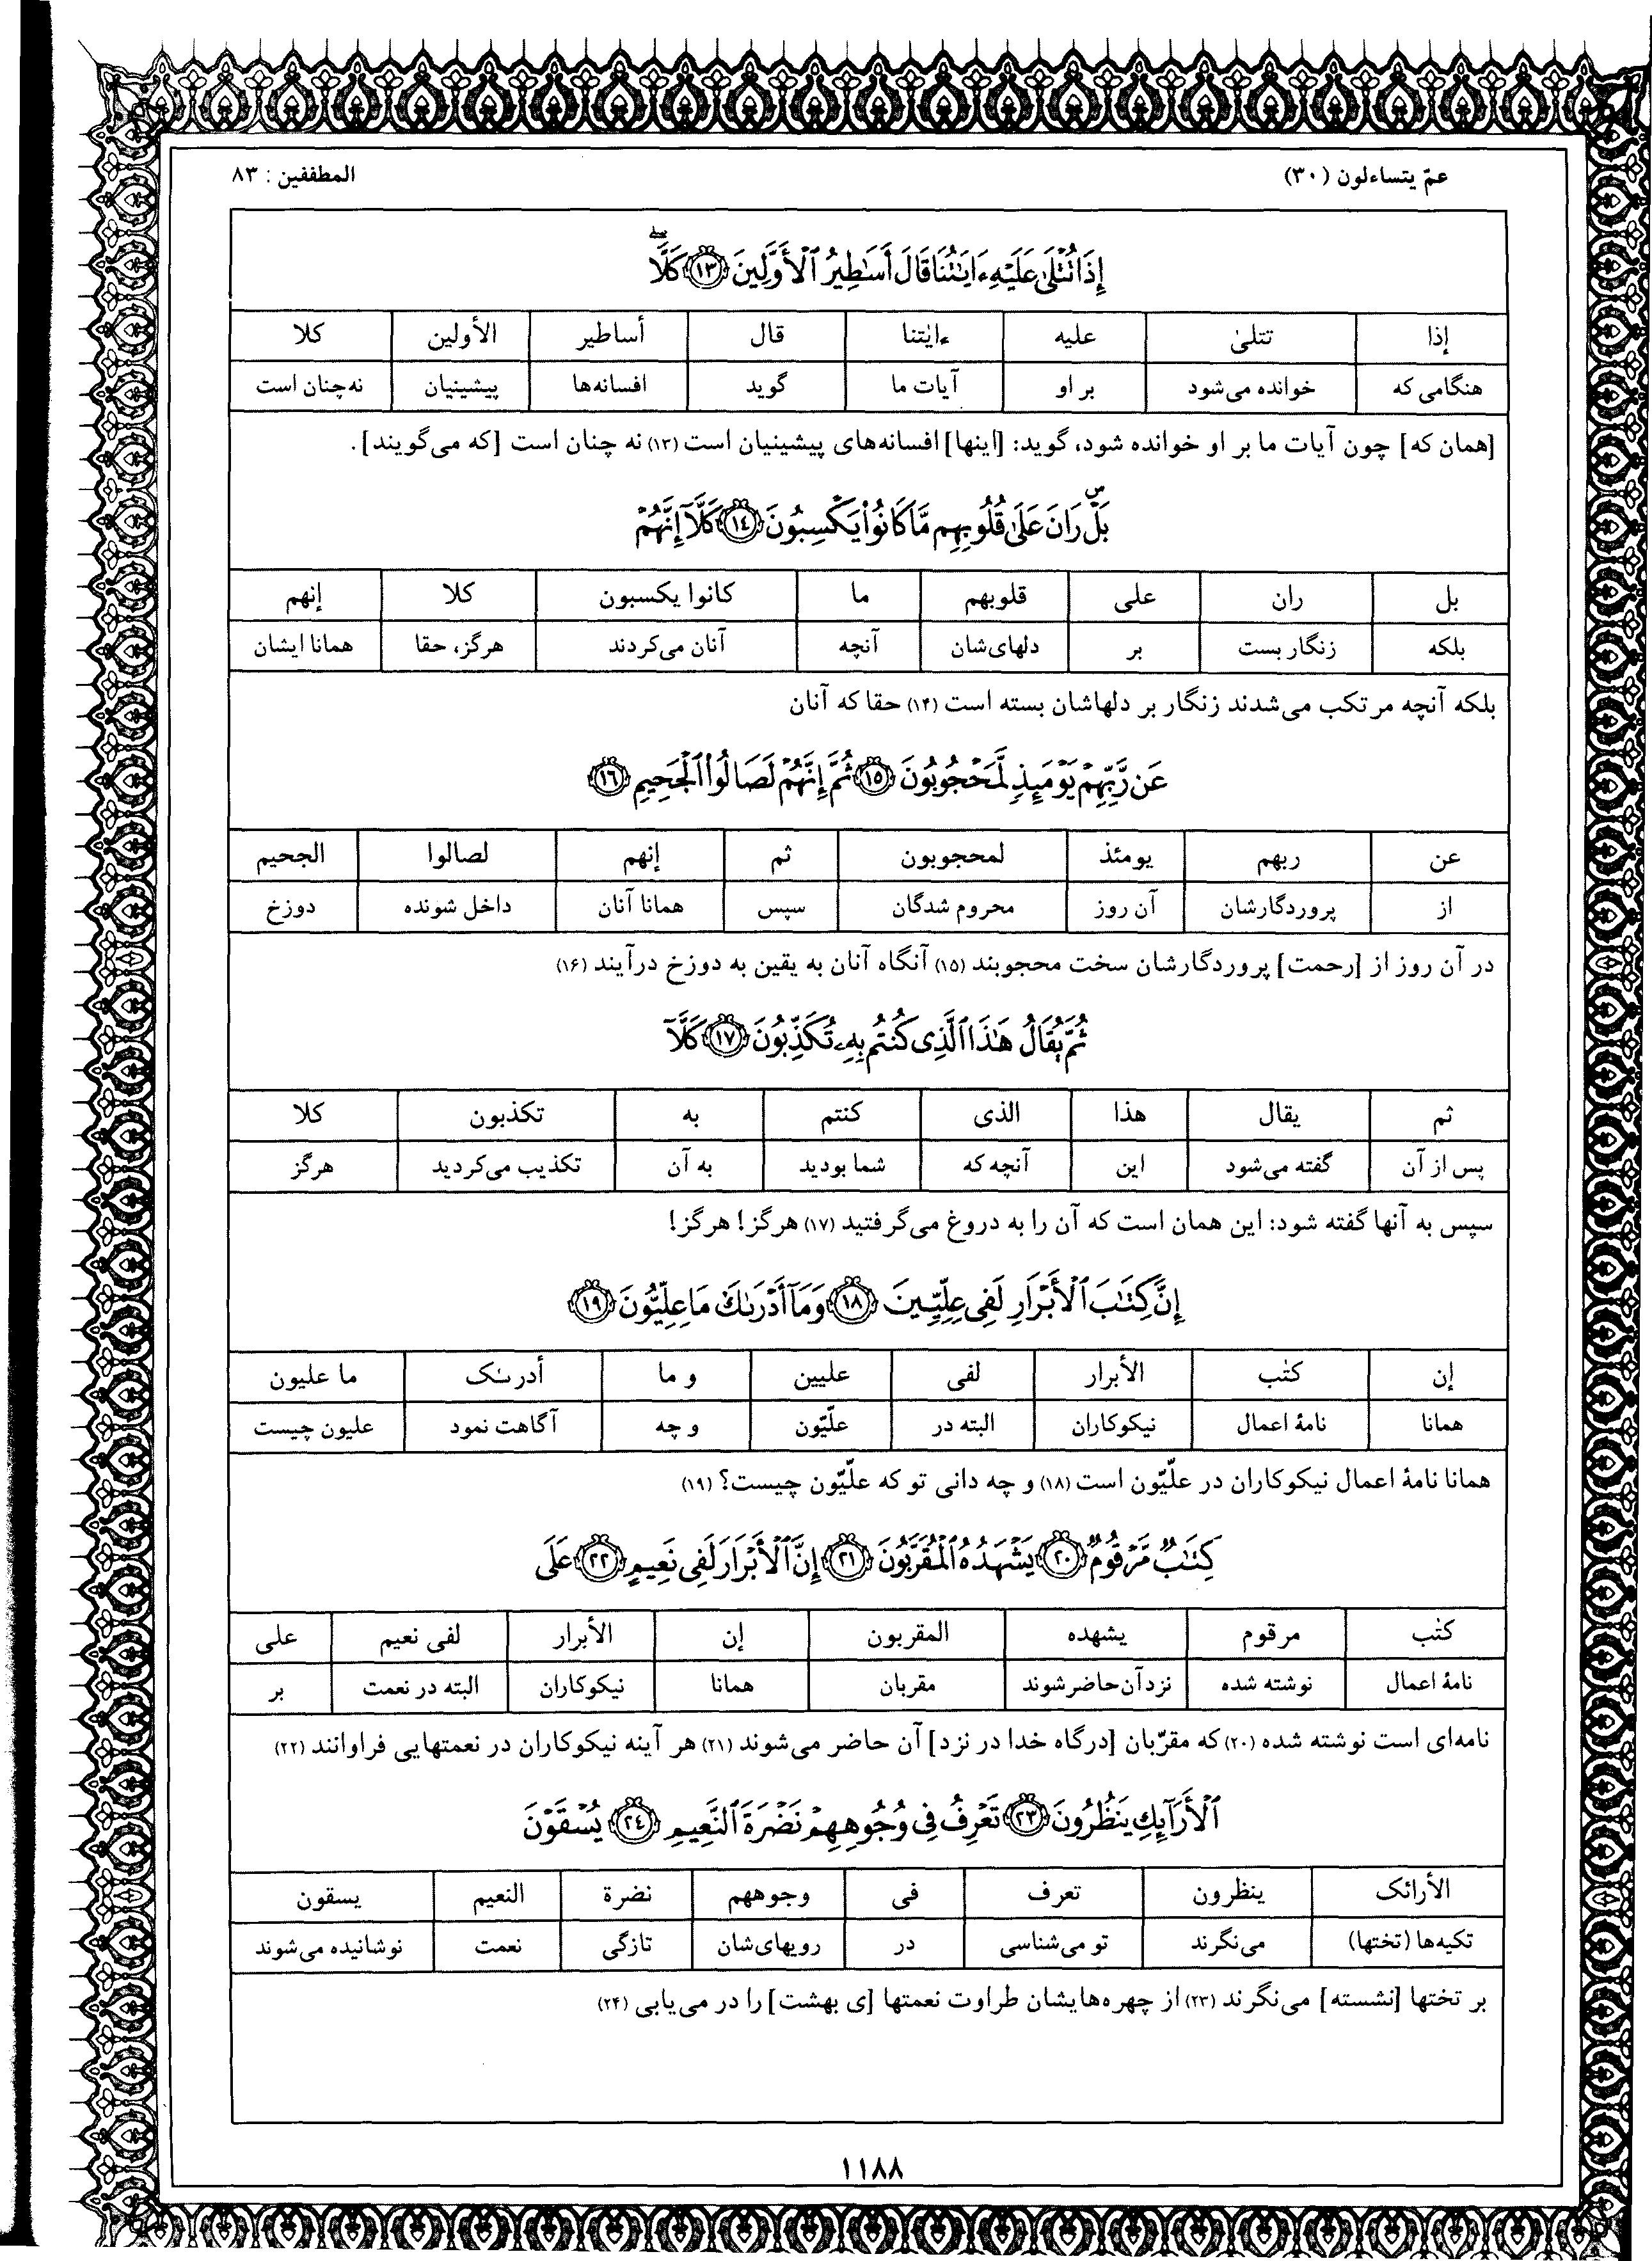 عمّ يتساءلون (٣٠) المطففين : ٨٣
إِذَا تُتْلَىٰ عَلَيْهِ ءَايَٰتُنَا قَالَ أَسَٰطِيرُ ٱلْأَوَّلِينَ ١٣ كَلَّا ۖ
إذا تتلیٰ علیه ءایٰتنا قال أساطیر الأولین کلا
هنگامی که خوانده می‌شود بر او آیات ما گوید افسانه‌ها پیشینیان نه چنان است
[همان که] چون آیات ما بر او خوانده شود، گوید: [اینها] افسانه‌های پیشینیان است (۱۳) نه چنان است [که می‌گویند].
بَلْ ۜ رَانَ عَلَىٰ قُلُوبِهِم مَّا كَانُوا۟ يَكْسِبُونَ ١٤ كَلَّآ إِنَّهُمْ
بل ران علی قلوبهم ما کانوا یکسبون کلا إنهم
بلکه زنگار بست بر دلهای‌شان آنچه آنان می‌کردند هرگز، حقا همانا ایشان
بلکه آنچه مرتکب می‌شدند زنگار بر دلهاشان بسته است (۱۴) حقا که آنان
عَن رَّبِّهِمْ يَوْمَئِذٍ لَّمَحْجُوبُونَ ١٥ ثُمَّ إِنَّهُمْ لَصَالُوا۟ ٱلْجَحِيمِ ١٦
عن ربهم یومئذ لمحجوبون ثم إنهم لصالوا الجحیم
از پروردگارشان آن روز محروم شدگان سپس همانا آنان داخل شونده دوزخ
در آن روز از [رحمت] پروردگارشان سخت محجوبند (۱۵) آنگاه آنان به یقین به دوزخ درآیند (۱۶)
ثُمَّ يُقَالُ هَٰذَا ٱلَّذِى كُنتُم بِهِۦ تُكَذِّبُونَ ١٧ كَلَّآ
ثم یقال هذا الذی کنتم به تکذبون کلا
پس از آن گفته می‌شود این آنچه که شما بودید به آن تکذیب می‌کردید هرگز
سپس به آنها گفته شود: این همان است که آن را به دروغ می‌گرفتید (۱۷) هرگز! هرگز!
إِنَّ كِتَٰبَ ٱلْأَبْرَارِ لَفِى عِلِّيِّينَ ١٨ وَمَآ أَدْرَىٰكَ مَا عِلِّيُّونَ ١٩
إن کتٰب الأبرار لفی علیین و ما أدرىٰک ما علیون
همانا نامهٔ اعمال نیکوکاران البته در علّیّون و چه آگاهت نمود علیون چیست
همانا نامهٔ اعمال نیکوکاران در علّیّون است (۱۸) و چه دانی تو که علّیّون چیست؟ (۱۹)
كِتَٰبٌ مَّرْقُومٌ ٢٠ يَشْهَدُهُ ٱلْمُقَرَّبُونَ ٢١ إِنَّ ٱلْأَبْرَارَ لَفِى نَعِيمٍ ٢٢ عَلَى
کتٰب مرقوم یشهده المقربون إن الأبرار لفی نعیم علی
نامهٔ اعمال نوشته شده نزد آن حاضر شوند مقربان همانا نیکوکاران البته در نعمت بر
نامه‌ای است نوشته شده (۲۰) که مقرّبان [درگاه خدا در نزد] آن حاضر می‌شوند (۲۱) هر آینه نیکوکاران در نعمتهایی فراوانند (۲۲)
ٱلْأَرَآئِكِ يَنظُرُونَ ٢٣ تَعْرِفُ فِى وُجُوهِهِمْ نَضْرَةَ ٱلنَّعِيمِ ٢٤ يُسْقَوْنَ
الأرائک ینظرون تعرف فی وجوههم نضرة النعیم یسقون
تکیه‌ها (تختها) می‌نگرند تو می‌شناسی در رویهای‌شان تازگی نعمت نوشانیده می‌شوند
بر تختها [نشسته] می‌نگرند (۲۳) از چهره‌هایشان طراوت نعمتها [ی بهشت] را در می‌یابی (۲۴)
۱۱۸۸